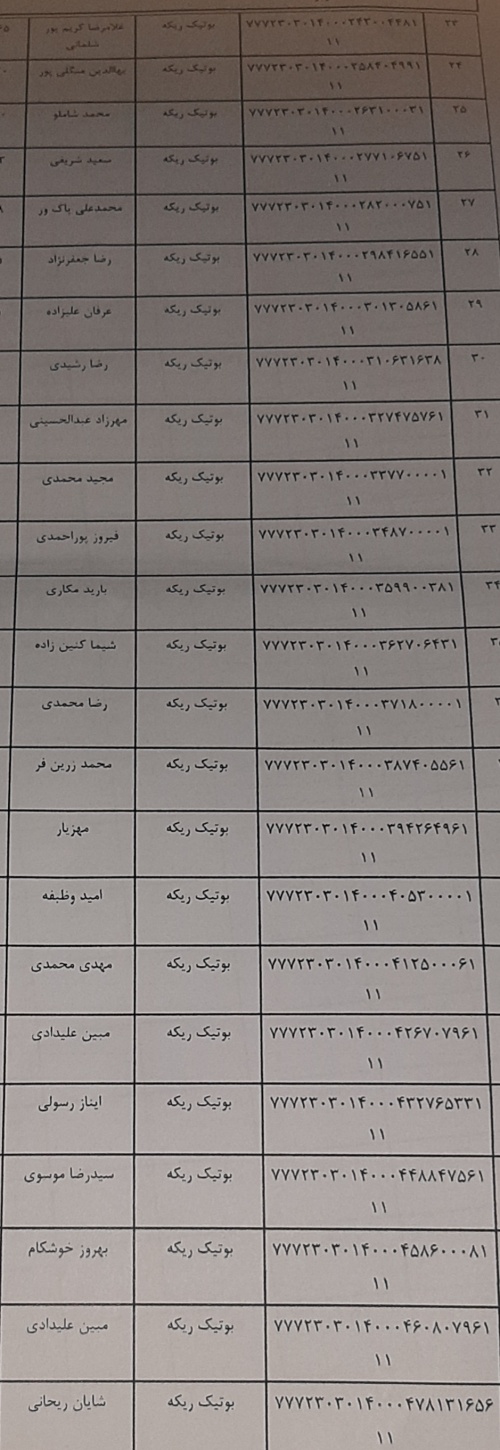 ۲۳ ۷۷۷۲۳۰۳۰۱۴۰۰۰۲۴۳۰۰۴۴۸۱ بوتیک ریکه غلامرضا کریم پور
۱۱ شلمانی
۲۴ ۷۷۷۲۳۰۳۰۱۴۰۰۰۲۵۸۴۰۴۹۹۱ بوتیک ریکه بهاالدین منگلی پور
۱۱
۲۵ ۷۷۷۲۳۰۳۰۱۴۰۰۰۲۶۳۱۰۰۰۳۱ بوتیک ریکه محمد شاملو
۱۱
۲۶ ۷۷۷۲۳۰۳۰۱۴۰۰۰۲۷۷۱۰۶۷۵۱ بوتیک ریکه سعید شریفی
۱۱
۲۷ ۷۷۷۲۳۰۳۰۱۴۰۰۰۲۸۲۰۰۰۷۵۱ بوتیک ریکه محمدعلی پاک ور
۱۱
۲۸ ۷۷۷۲۳۰۳۰۱۴۰۰۰۲۹۸۴۱۶۵۵۱ بوتیک ریکه رضا جعفرنژاد
۱۱
۲۹ ۷۷۷۲۳۰۳۰۱۴۰۰۰۳۰۱۳۰۵۸۶۱ بوتیک ریکه عرفان علیزاده
۱۱
۳۰ ۷۷۷۲۳۰۳۰۱۴۰۰۰۳۱۰۶۳۱۶۳۸ بوتیک ریکه رضا رشیدی
۱۱
۳۱ ۷۷۷۲۳۰۳۰۱۴۰۰۰۳۲۷۴۷۵۷۶۱ بوتیک ریکه مهرزاد عبدالحسینی
۱۱
۳۲ ۷۷۷۲۳۰۳۰۱۴۰۰۰۳۳۷۷۰۰۰۰۱ بوتیک ریکه مجید محمدی
۱۱
۳۳ ۷۷۷۲۳۰۳۰۱۴۰۰۰۳۴۸۷۰۰۰۰۱ بوتیک ریکه فیروز پوراحمدی
۱۱
۳۴ ۷۷۷۲۳۰۳۰۱۴۰۰۰۳۵۹۹۰۰۳۸۱ بوتیک ریکه باربد مکاری
۱۱
۷۷۷۲۳۰۳۰۱۴۰۰۰۳۶۲۷۰۶۴۳۱ بوتیک ریکه شیما کنین زاده
۱۱
۷۷۷۲۳۰۳۰۱۴۰۰۰۳۷۱۸۰۰۰۰۱ بوتیک ریکه رضا محمدی
۱۱
۷۷۷۲۳۰۳۰۱۴۰۰۰۳۸۷۴۰۵۵۶۱ بوتیک ریکه محمد زرین فر
۱۱
۷۷۷۲۳۰۳۰۱۴۰۰۰۳۹۴۲۶۴۹۶۱ بوتیک ریکه مهزیار
۱۱
۷۷۷۲۳۰۳۰۱۴۰۰۰۴۰۵۳۰۰۰۰۱ بوتیک ریکه امید وظیفه
۱۱
۷۷۷۲۳۰۳۰۱۴۰۰۰۴۱۲۵۰۰۰۶۱ بوتیک ریکه مهدی محمدی
۱۱
۷۷۷۲۳۰۳۰۱۴۰۰۰۴۲۶۷۰۷۹۶۱ بوتیک ریکه مبین علیدادی
۱۱
۷۷۷۲۳۰۳۰۱۴۰۰۰۴۳۲۷۶۵۳۳۱ بوتیک ریکه ایناز رسولی
۱۱
۷۷۷۲۳۰۳۰۱۴۰۰۰۴۴۸۸۴۷۵۶۱ بوتیک ریکه سیدرضا موسوی
۱۱
۷۷۷۲۳۰۳۰۱۴۰۰۰۴۵۸۶۰۰۰۸۱ بوتیک ریکه بهروز خوشکام
۱۱
۷۷۷۲۳۰۳۰۱۴۰۰۰۴۶۰۸۰۷۹۶۱ بوتیک ریکه مبین علیدادی
۱۱
۷۷۷۲۳۰۳۰۱۴۰۰۰۴۷۸۱۳۱۶۵۶ بوتیک ریکه شایان ریحانی
۱۱